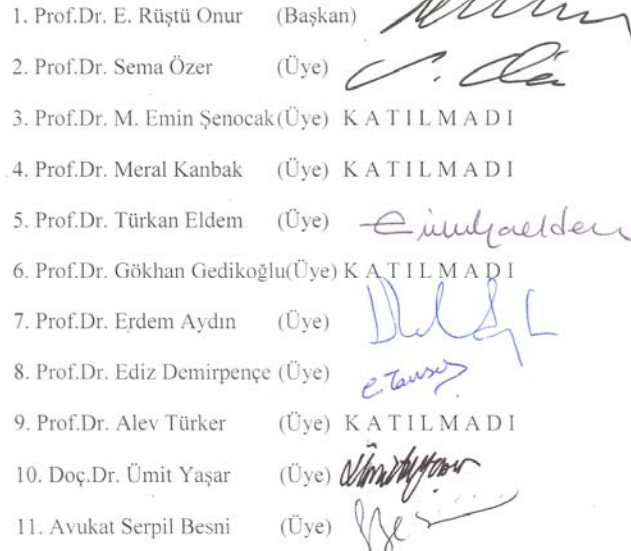 1. Prof.Dr. E. Rüştü Onur (Başkan)
2. Prof.Dr. Sema Özer (Üye)
3. Prof.Dr. M. Emin Şenocak (Üye) K A T I L M A D I
4. Prof.Dr. Meral Kanbak (Üye) K A T I L M A D I
5. Prof.Dr. Türkan Eldem (Üye)
6. Prof.Dr. Gökhan Gedikoğlu(Üye) K A T I L M A D I
7. Prof.Dr. Erdem Aydın (Üye)
8. Prof.Dr. Ediz Demirpençe (Üye)
9. Prof.Dr. Alev Türker (Üye) K A T I L M A D I
10. Doç.Dr. Ümit Yaşar (Üye)
11. Avukat Serpil Besni (Üye)